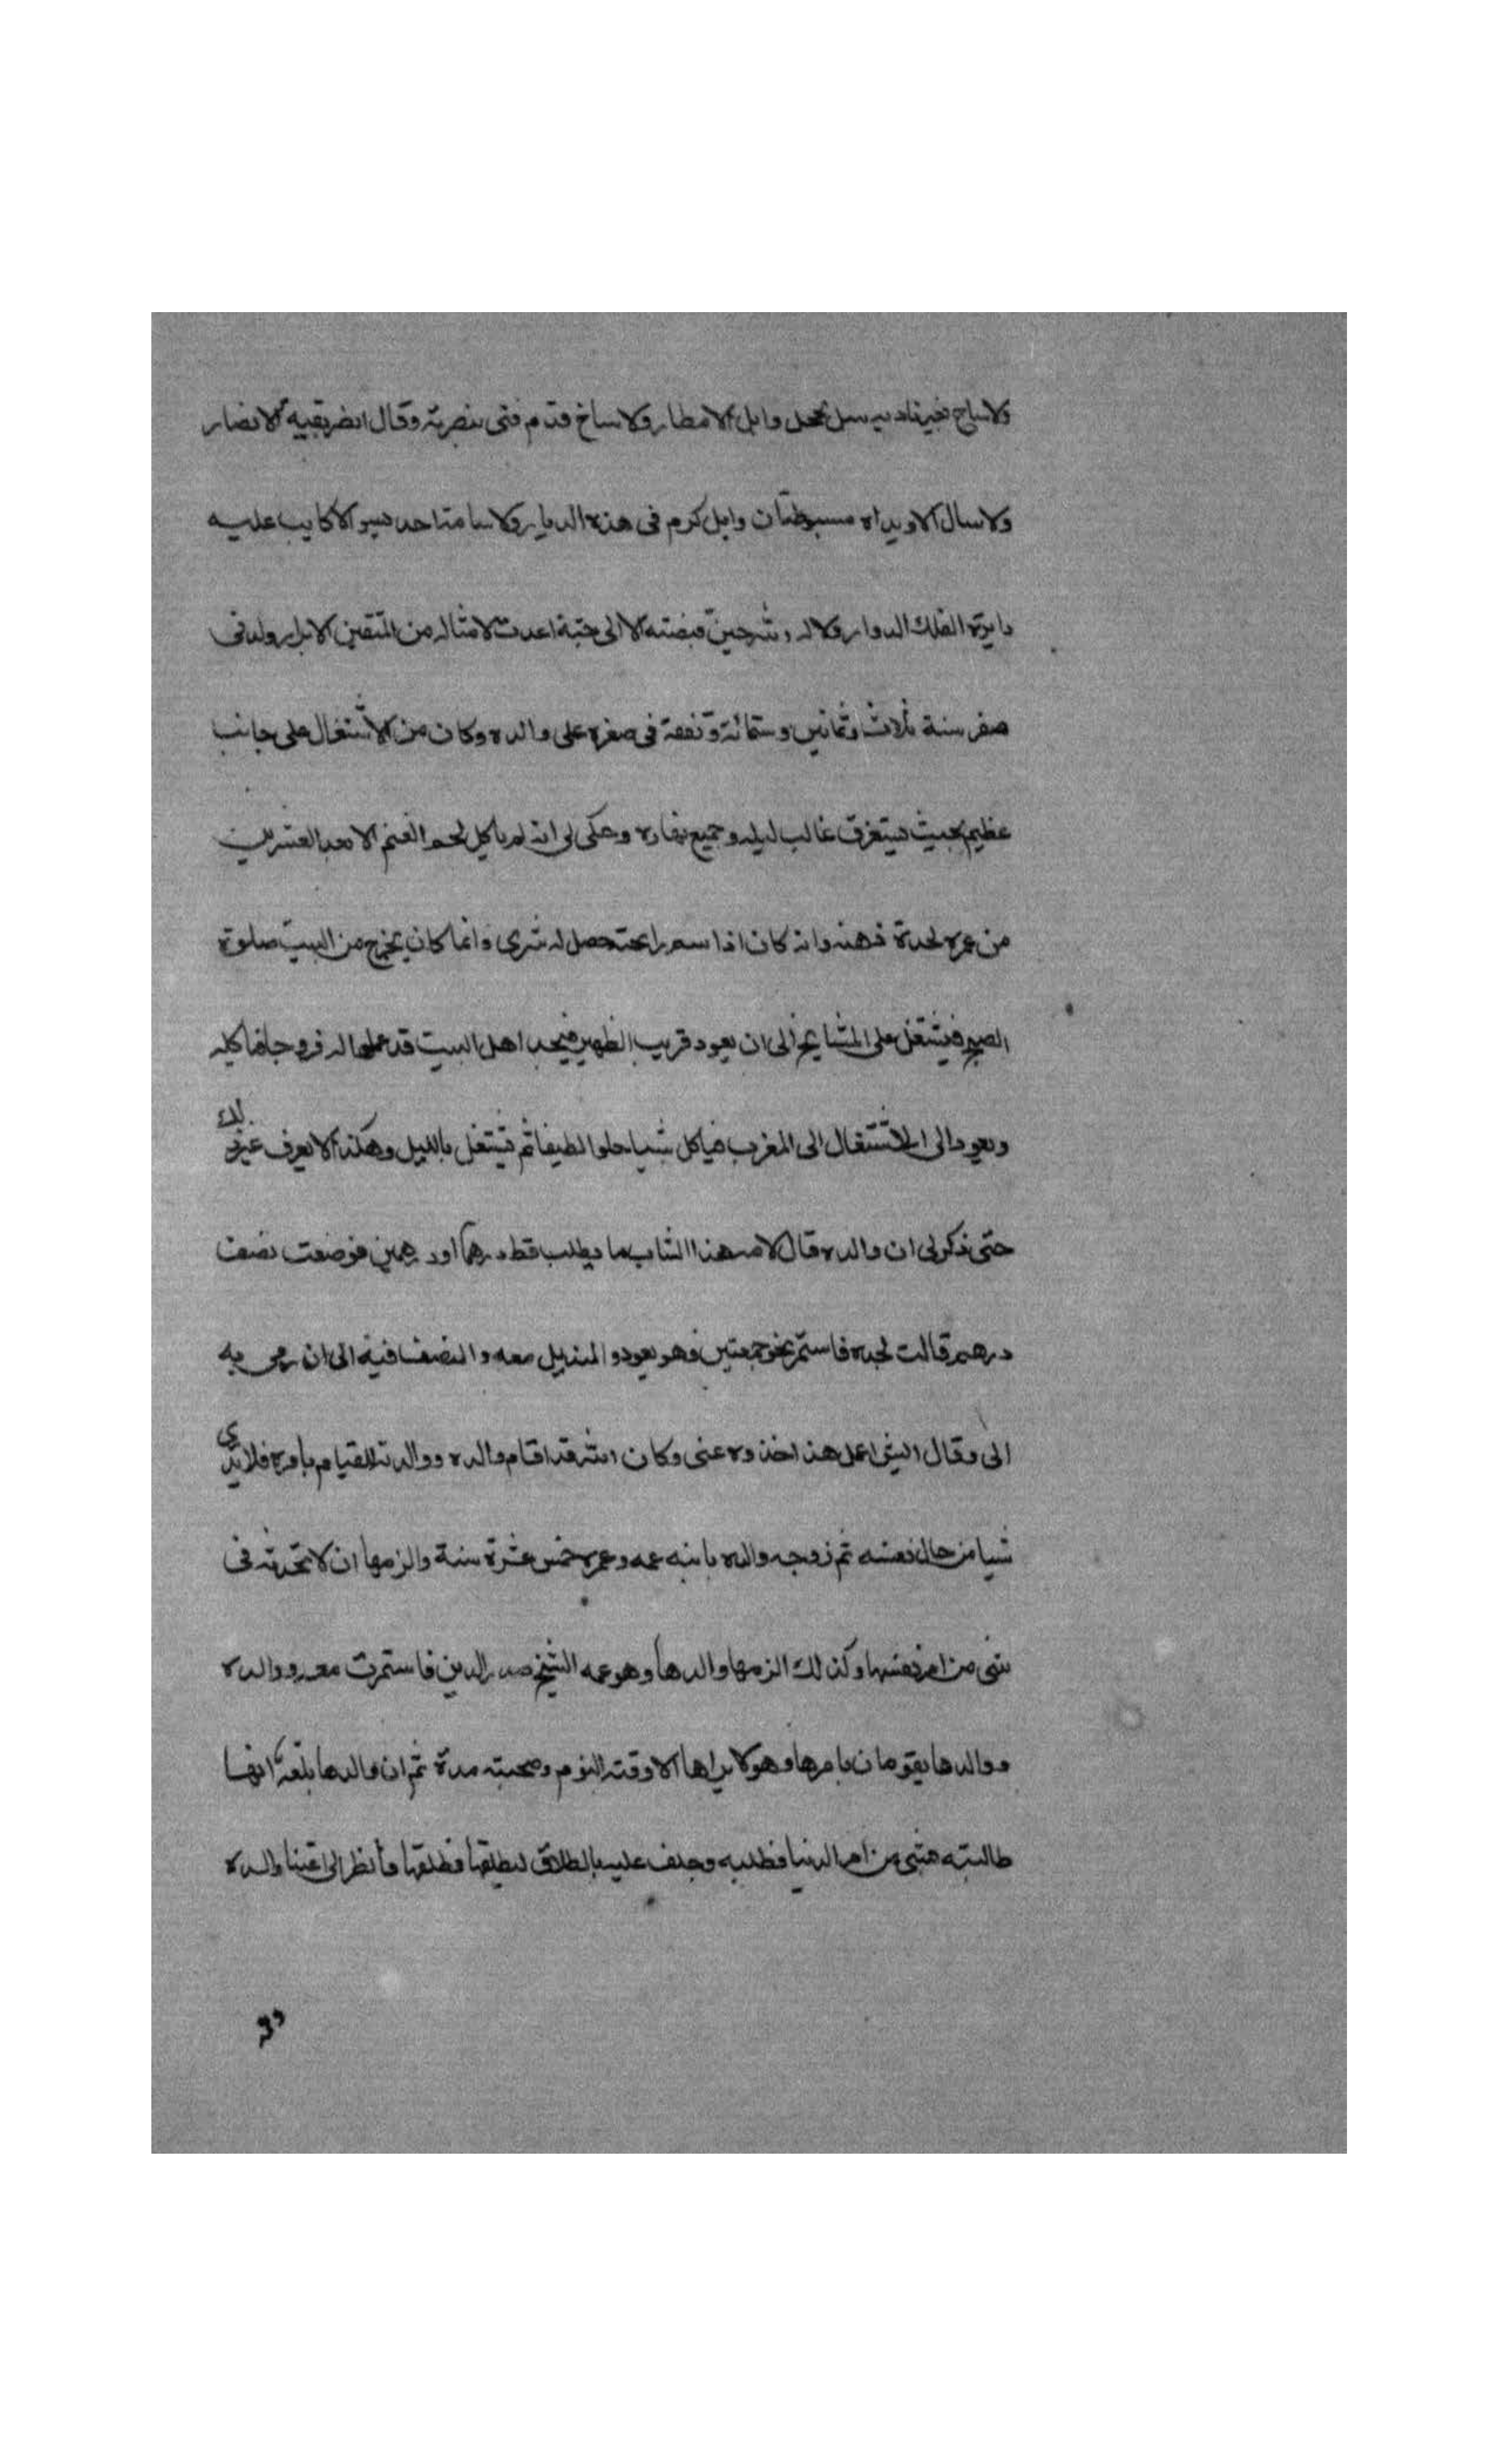 ولا ساح بغير ناديه سيل يخجل وابل الامطار ولا ساخ قدم فتى بنصرته وقال انصر بقية الانصار
ولا سال الا ويداه مبسوطتان وابل كرم فى هذه الديار ولا سامه احد بسو الا كايب عليه
دايرة الفلك الدوار ولا له حين قبضته الا الى جنبة اعدت لامثاله من المتقين الابرار ولد فى
صفر سنة ثلاث وثمانين وستمائة وتفقه فى صغره على والده وكان من الاشتغال على جانب
عظيم بحيث يستغرق غالب ليله وجميع نهاره وحكى لى انه لم ياكل لحم الغنم الا بعد العشرين
من عمره لحدة ذهنه وانه كان اذا اسم رايحته حصل له شرى وانما كان يخرج من البيت صلوة
الصبح فيشتغل على المشايخ الى ان يعود قريب الظهر فيجد اهل البيت قد عملوا له فروجا فياكله
ويعود الى الاشتغال الى المغرب فياكل شيا حلوا لطيفا ثم يشتغل بالليل وهكذا لا يعرف غير ذلك
حتى ذكر لى ان والده قال لامه هذا الشاب ما يطلب قط درهما او درهمين فوضعت نصف
درهم قالت لجده فاستمر نحو جمعتين وهو يعود والمنديل معه والنصف فيه الى ان رمى به
الى وقال ايش اعمل بهذا خذوه عنى وكان الله قد اقام والده ووالدته للقيام بامره فلا يدرى
شيا من حال نفسه ثم زوجه والده بابنه عمه وعمره خمس عشرة سنة والزمها ان لا تحدثه فى
شى من امر نفسها وكذلك الزمها والدها وهو عمه الشيخ صدر الدين فاستمرت معه ووالده
ووالدها يقومان بامرها وهو لا يراها الا وقت النوم وصحبته مدة ثم ان والدها بلغه انها
طالبته بشى من امر الدنيا فطلبه وحلف عليه بالطلاق ليطلقها فطلقها فانظر الى اعتنا والده